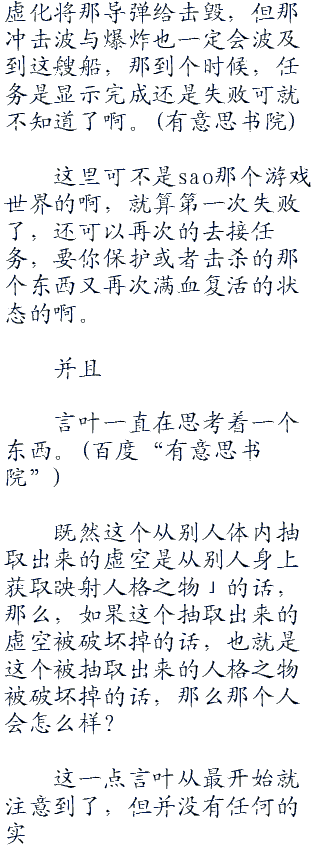 虚化将那导弹给击毁，但那
冲击波与爆炸也一定会波及
到这艘船，那到个时候，任
务是显示完成还是失败可就
不知道了啊。(有意思书院)
这里可不是sao那个游戏
世界的啊，就算第一次失败
了，还可以再次的去接任
务，要你保护或者击杀的那
个东西又再次满血复活的状
态的啊。
并且
言叶一直在思考着一个
东西。(百度“有意思书
院”)
既然这个从别人体内抽
取出来的虚空是从别人身上
获取映射人格之物」的话，
那么，如果这个抽取出来的
虚空被破坏掉的话，也就是
这个被抽取出来的人格之物
被破坏掉的话，那么那个人
会怎么样？
这一点言叶从最开始就
注意到了，但并没有任何的
实